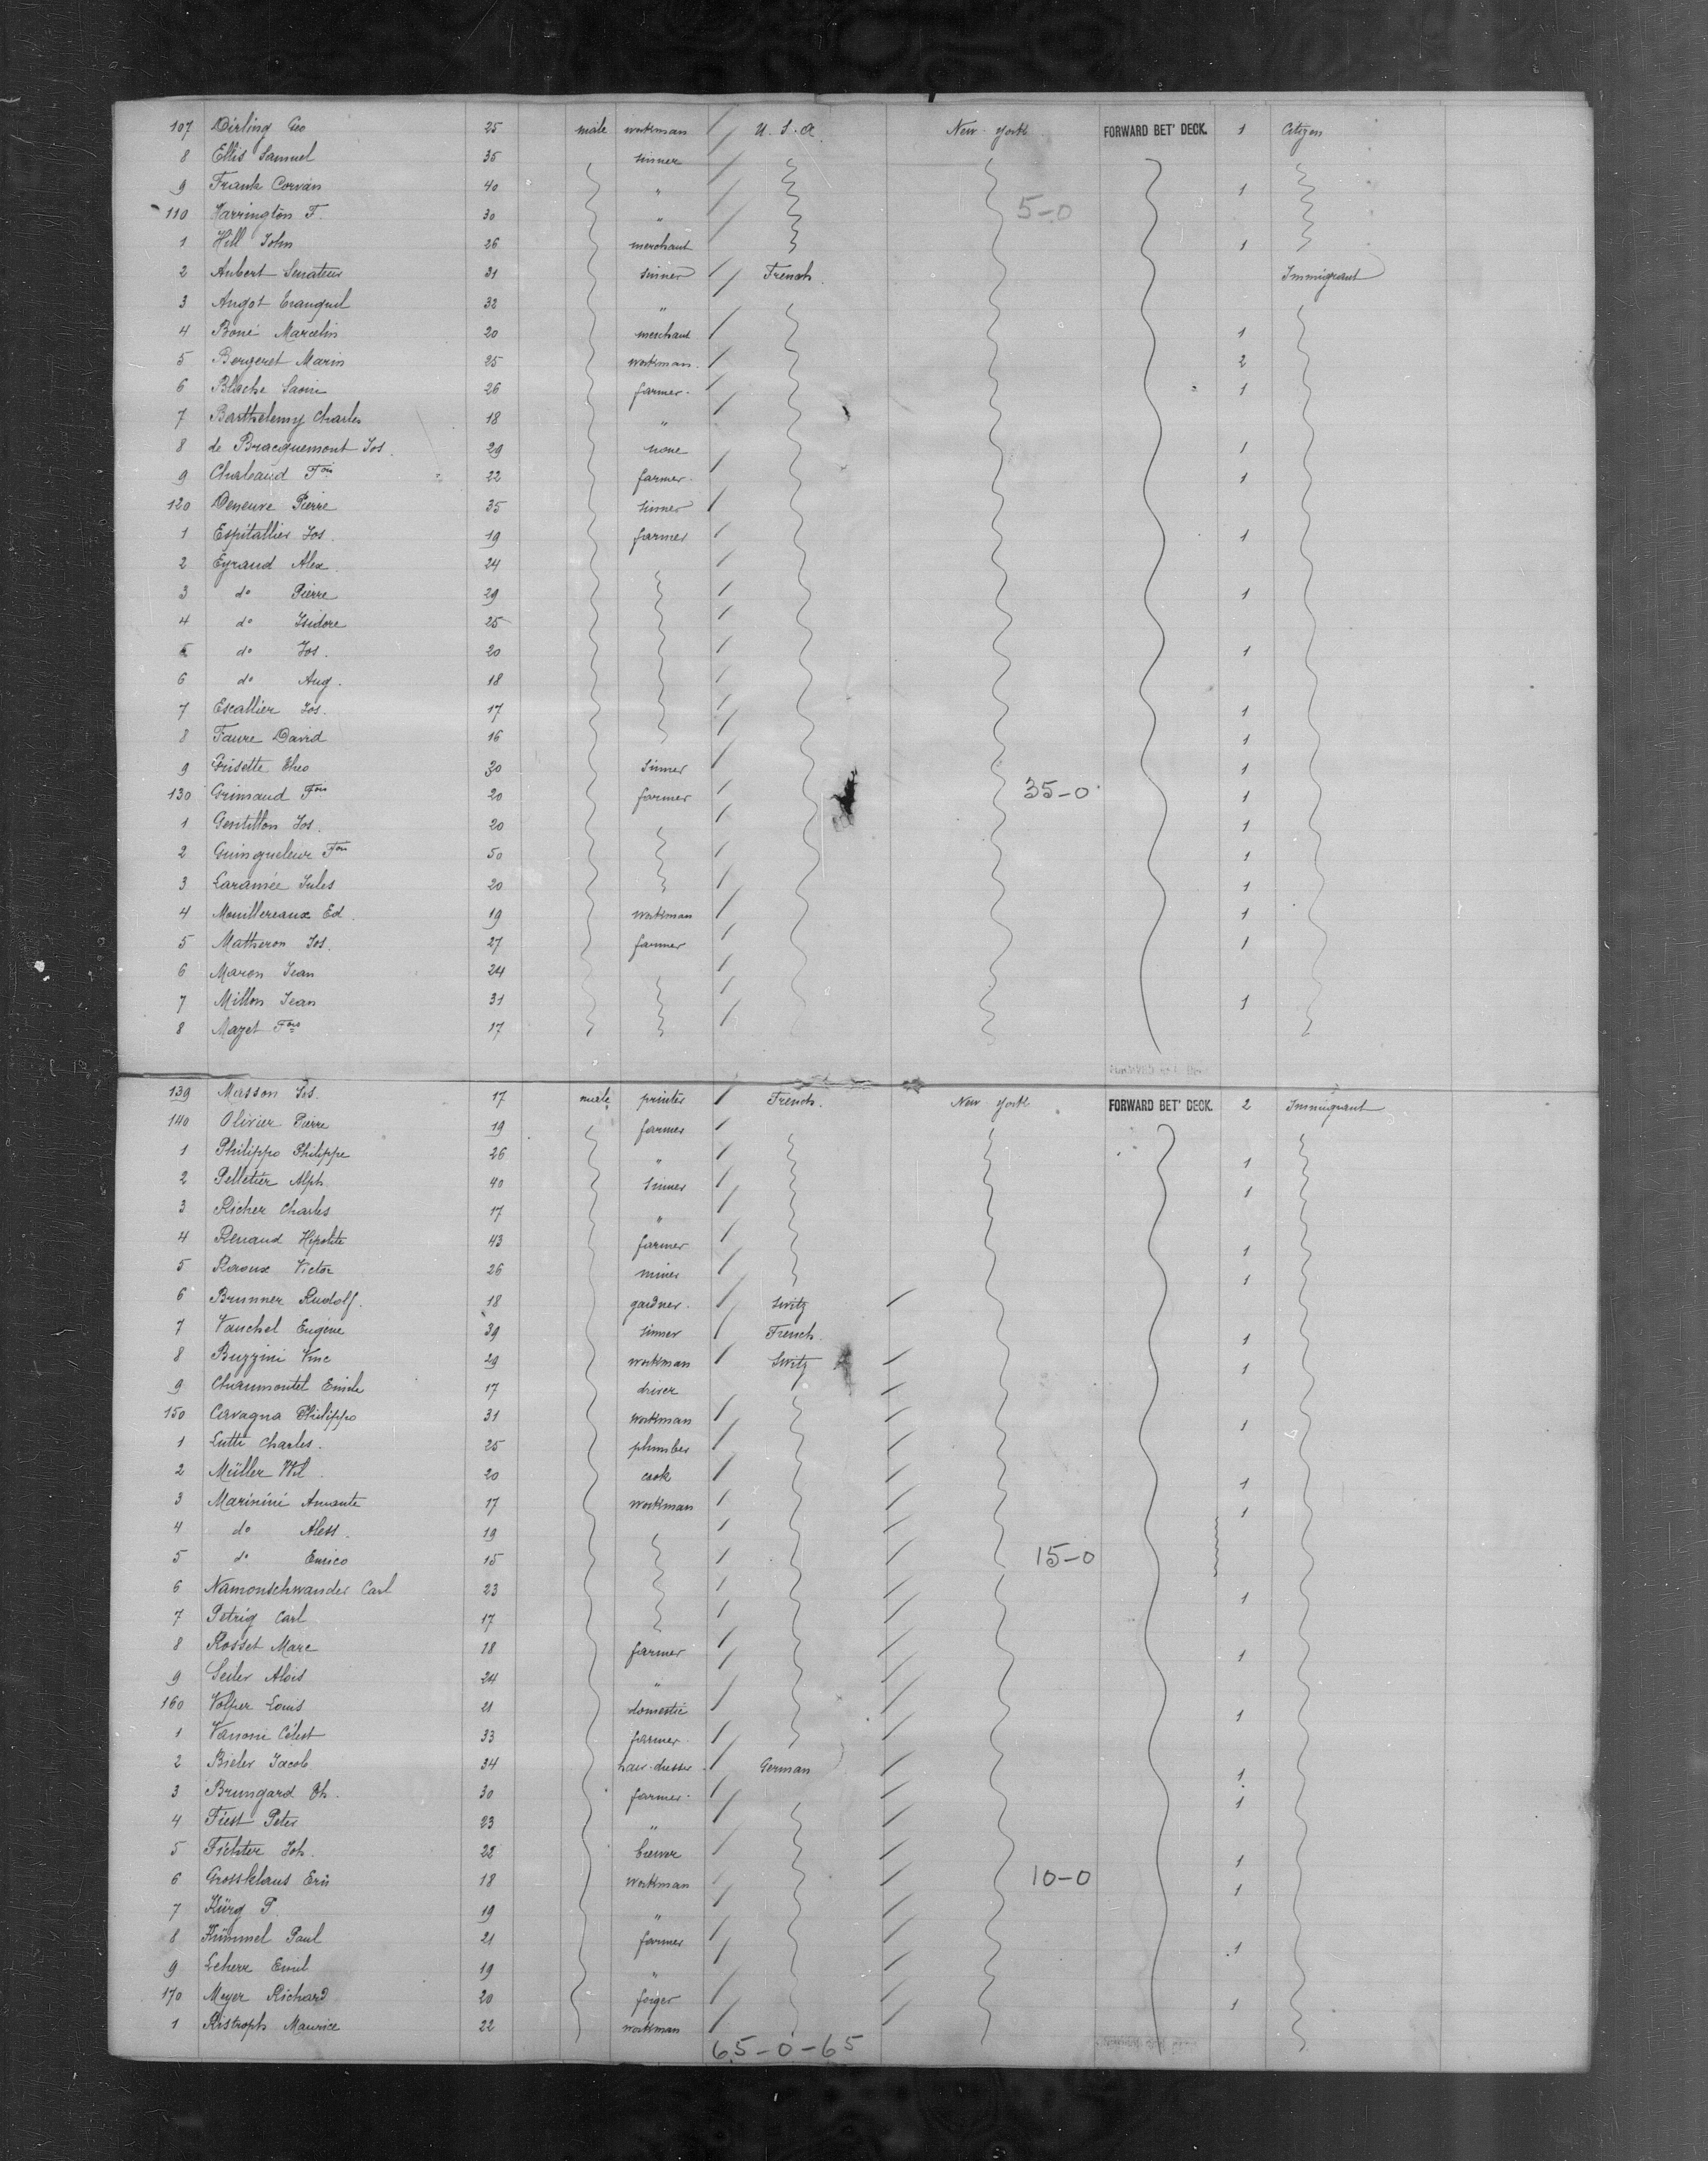 107 Dirling Geo 25 male workman U.S.A. New York FORWARD BET' DECK. 1 Citizen
8 Ellis Samuel 35 sinner
9 Frank Corvan 40 " 1
110 Harrington F. 30 " 5-0
1 Hill John 26 merchant 1
2 Aubert Senateur 31 sinner French Immigrant
3 Angot 32 "
4 Boné Marcelin 20 merchant 1
5 Bergeret Marin 25 workman. 2
6 Blache 26 farmer. 1
7 Barthelemy Charles 18 "
8 de Bracquemont Jos. 29 none 1
9 Chabaud Fois 22 farmer. 1
120 Deneuve Pierre 35 sinner
1 Espitallier Jos. 19 farmer 1
2 Eyraud Alex. 24
3 do Pierre 29 1
4 do Isidore 25
5 do Jos. 20 1
6 do Aug. 18
7 Escallier Jos. 17 1
8 Faure David 16 1
9 Grisette Theo 30 sinner 1
130 Grimaud Fois 20 farmer 35-0 1
1 Gentillon Jos. 20 1
2 Guingueleur Fois 50 1
3 Laramée Jules 20 1
4 Mouillereaux Ed. 19 workman 1
5 Matheron Jos. 27 farmer 1
6 Maron Jean 24
7 Millon Jean 31 1
8 Mazet Fois 17
139 Masson Jos. 17 male printer French. New York FORWARD BET' DECK. 2 Immigrant
140 Olivier Pierre 19 farmer
1 Philippo Philippe 26 " 1
2 Pelletier Alph. 40 sinner 1
3 Richer Charles 17 "
4 Renaud Hipolite 43 farmer 1
5 Raoux Victor 26 miner 1
6 Brunner Rudolf. 18 gardner. Switz
7 Vauchel Eugène 39 sinner French. 1
8 Buzzini Vinc 29 workman Switz 1
9 Chaumontel Emile 17 driver
150 Cavagna Philippo 31 workman 1
1 Lutti Charles. 25 plumber
2 Müller Wil. 20 cook 1
3 Marinini Amante 17 workman 1
4 do Aless. 19
5 do Enrico 15 15-0
6 Namonschwander Carl 23 1
7 Petrig Carl 17
8 Rosset Marc 18 farmer 1
9 Seiler Alois 24 "
160 Volper Louis 21 domestic 1
1 Vanoni Célest 33 farmer.
2 Bieler Jacob 34 hair-dresser. German 1
3 Brungard Th. 30 farmer. 1
4 Fiest Peter 23 "
5 Fichter Joh. 22 brewer 1
6 Grossklaus Ern 18 workman 10-0 1
7 Kürg P. 19 "
8 Kümmel Paul 21 farmer 1
9 Scherr Emil 19 "
170 Meyer Richard 20 feiger 1
1 Ristroph Maurice 22 workman
65-0-65